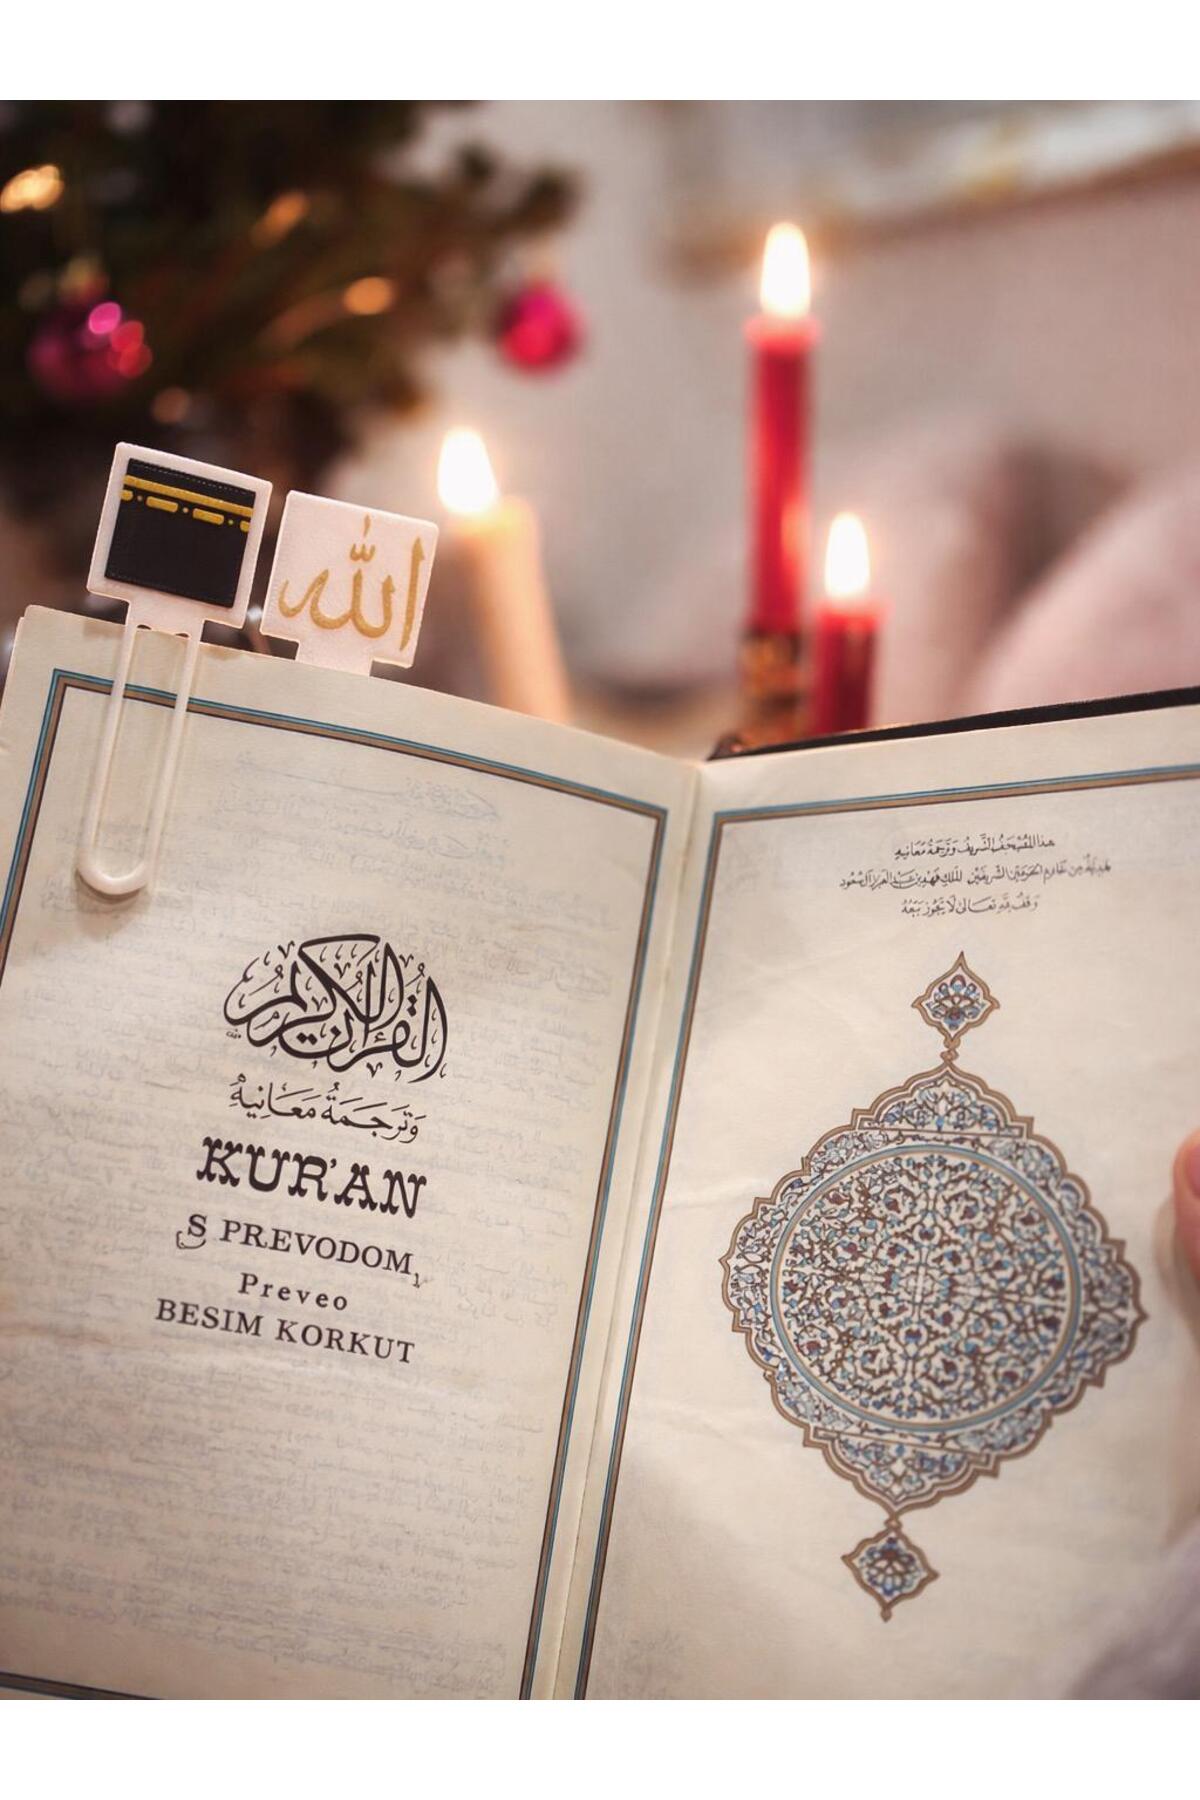 الله
القرآن الكريم
وَتَرجَمَةُ مَعَانيهِ
KUR'AN
S PREVODOM
Preveo
BESIM KORKUT
هذا المصْحَف الشَّريف وَتَرجَمَةُ مَعَانيهِ
هَديَّة مِن خَادِم الحَرَمَين الشَّريفَين الملِك فهد بن عَبد العَزيز آل سُعُود
وَقفٌ للهِ تعَالىٰ لَا يَجُوز بَيعُهُ